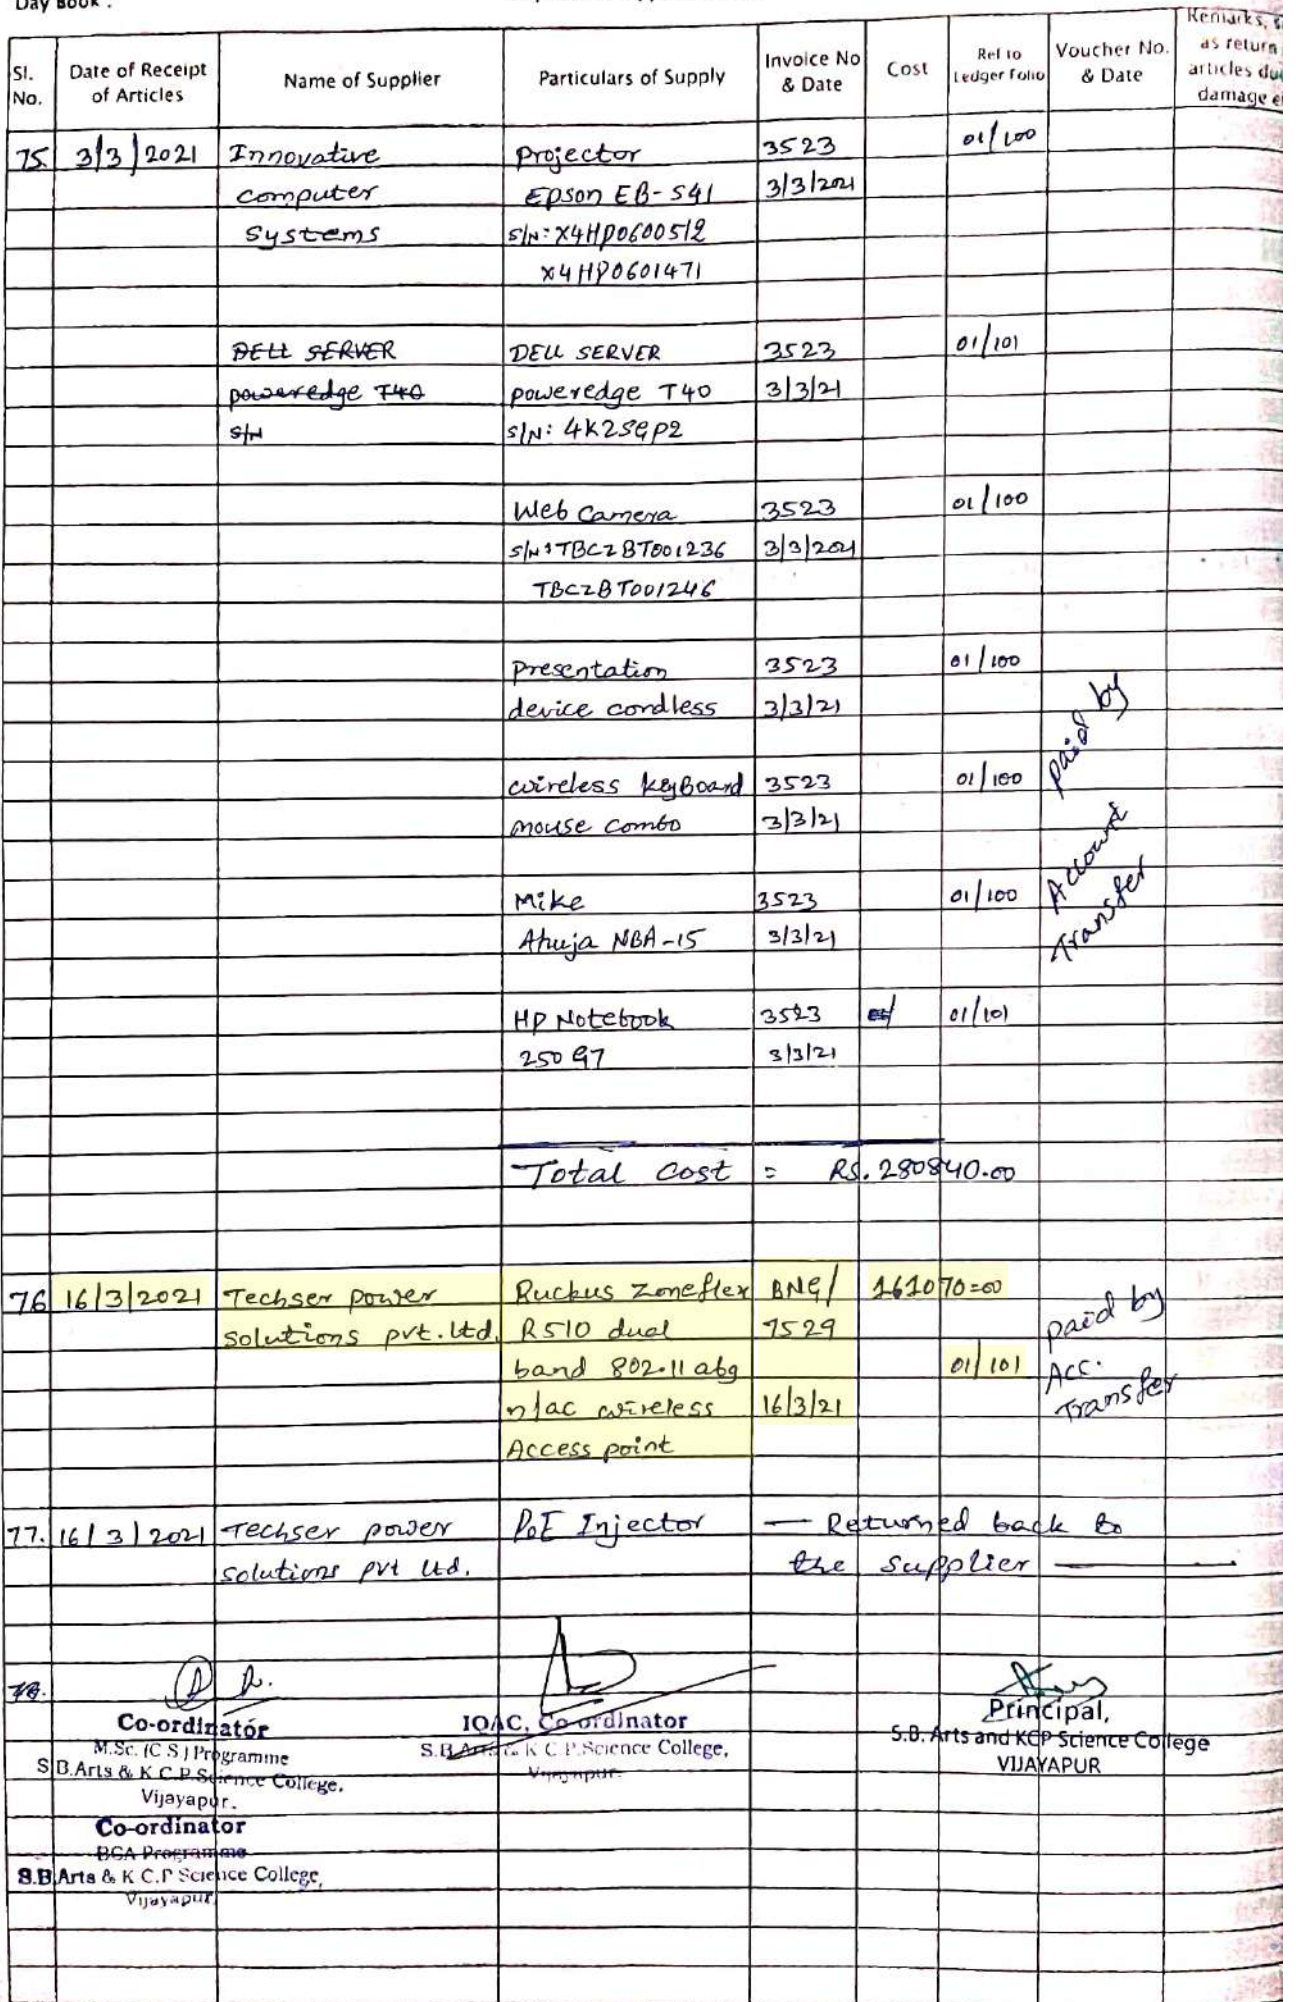 Day Book :
Sl. No. Date of Receipt of Articles Name of Supplier Particulars of Supply Invoice No & Date Cost Ref to Ledger Folio Voucher No. & Date Remarks, as return articles damage
75. 3/3/2021 Innovative Projector 3523 01/100
computer Epson EB-S41 3/3/2021
Systems S/N: X4HP0600512
X4HP0601471
DELL SERVER DELL SERVER 3523 01/101
poweredge T40 poweredge T40 3/3/21
S/N S/N: 4K2SGP2
Web Camera 3523 01/100
S/N: TBCZBT001236 3/3/2021
TBCZBT001246
Presentation 3523 01/100
device cordless 3/3/21
paid by
wireless keyBoard 3523 01/100
mouse combo 3/3/21
Account
Mike 3523 01/100
Transfer
Ahuja NBA-15 3/3/21
HP Notebook 3523 01/101
250 G7 3/3/21
Total Cost = RS. 280840.00
76 16/3/2021 Techser power Ruckus Zoneflex BNG/ 161070=00 paid by
solutions pvt. ltd. R510 dual 7529
band 802.11 abg 01/101 Acc.
n/ac wireless 16/3/21 Transfer
Access point
77. 16/3/2021 Techser power PoE Injector — Returned back to
solutions pvt ltd. the supplier —
78.
Co-ordinator
M.Sc. (C S) Programme
S.B.Arts & K.C.P. Science College,
Vijayapur.
Co-ordinator
BCA Programme
S.B.Arts & K C.P Science College,
Vijayapur
IQAC, Co-ordinator
S.B Arts & K C.P. Science College,
Vijayapur.
Principal,
S.B. Arts and KCP Science College
VIJAYAPUR